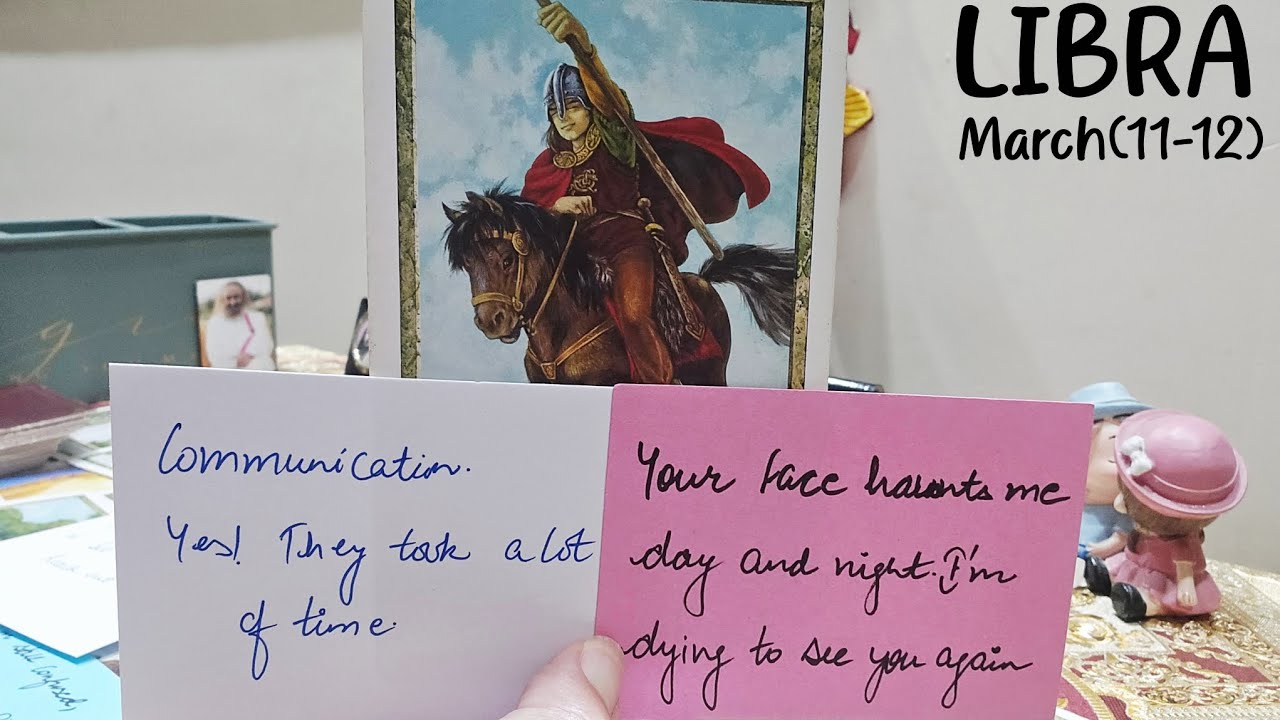 LIBRA
March(11-12)
Communication.
Yes! They took a lot
of time.
Your face haunts me
day and night. I'm
dying to see you again